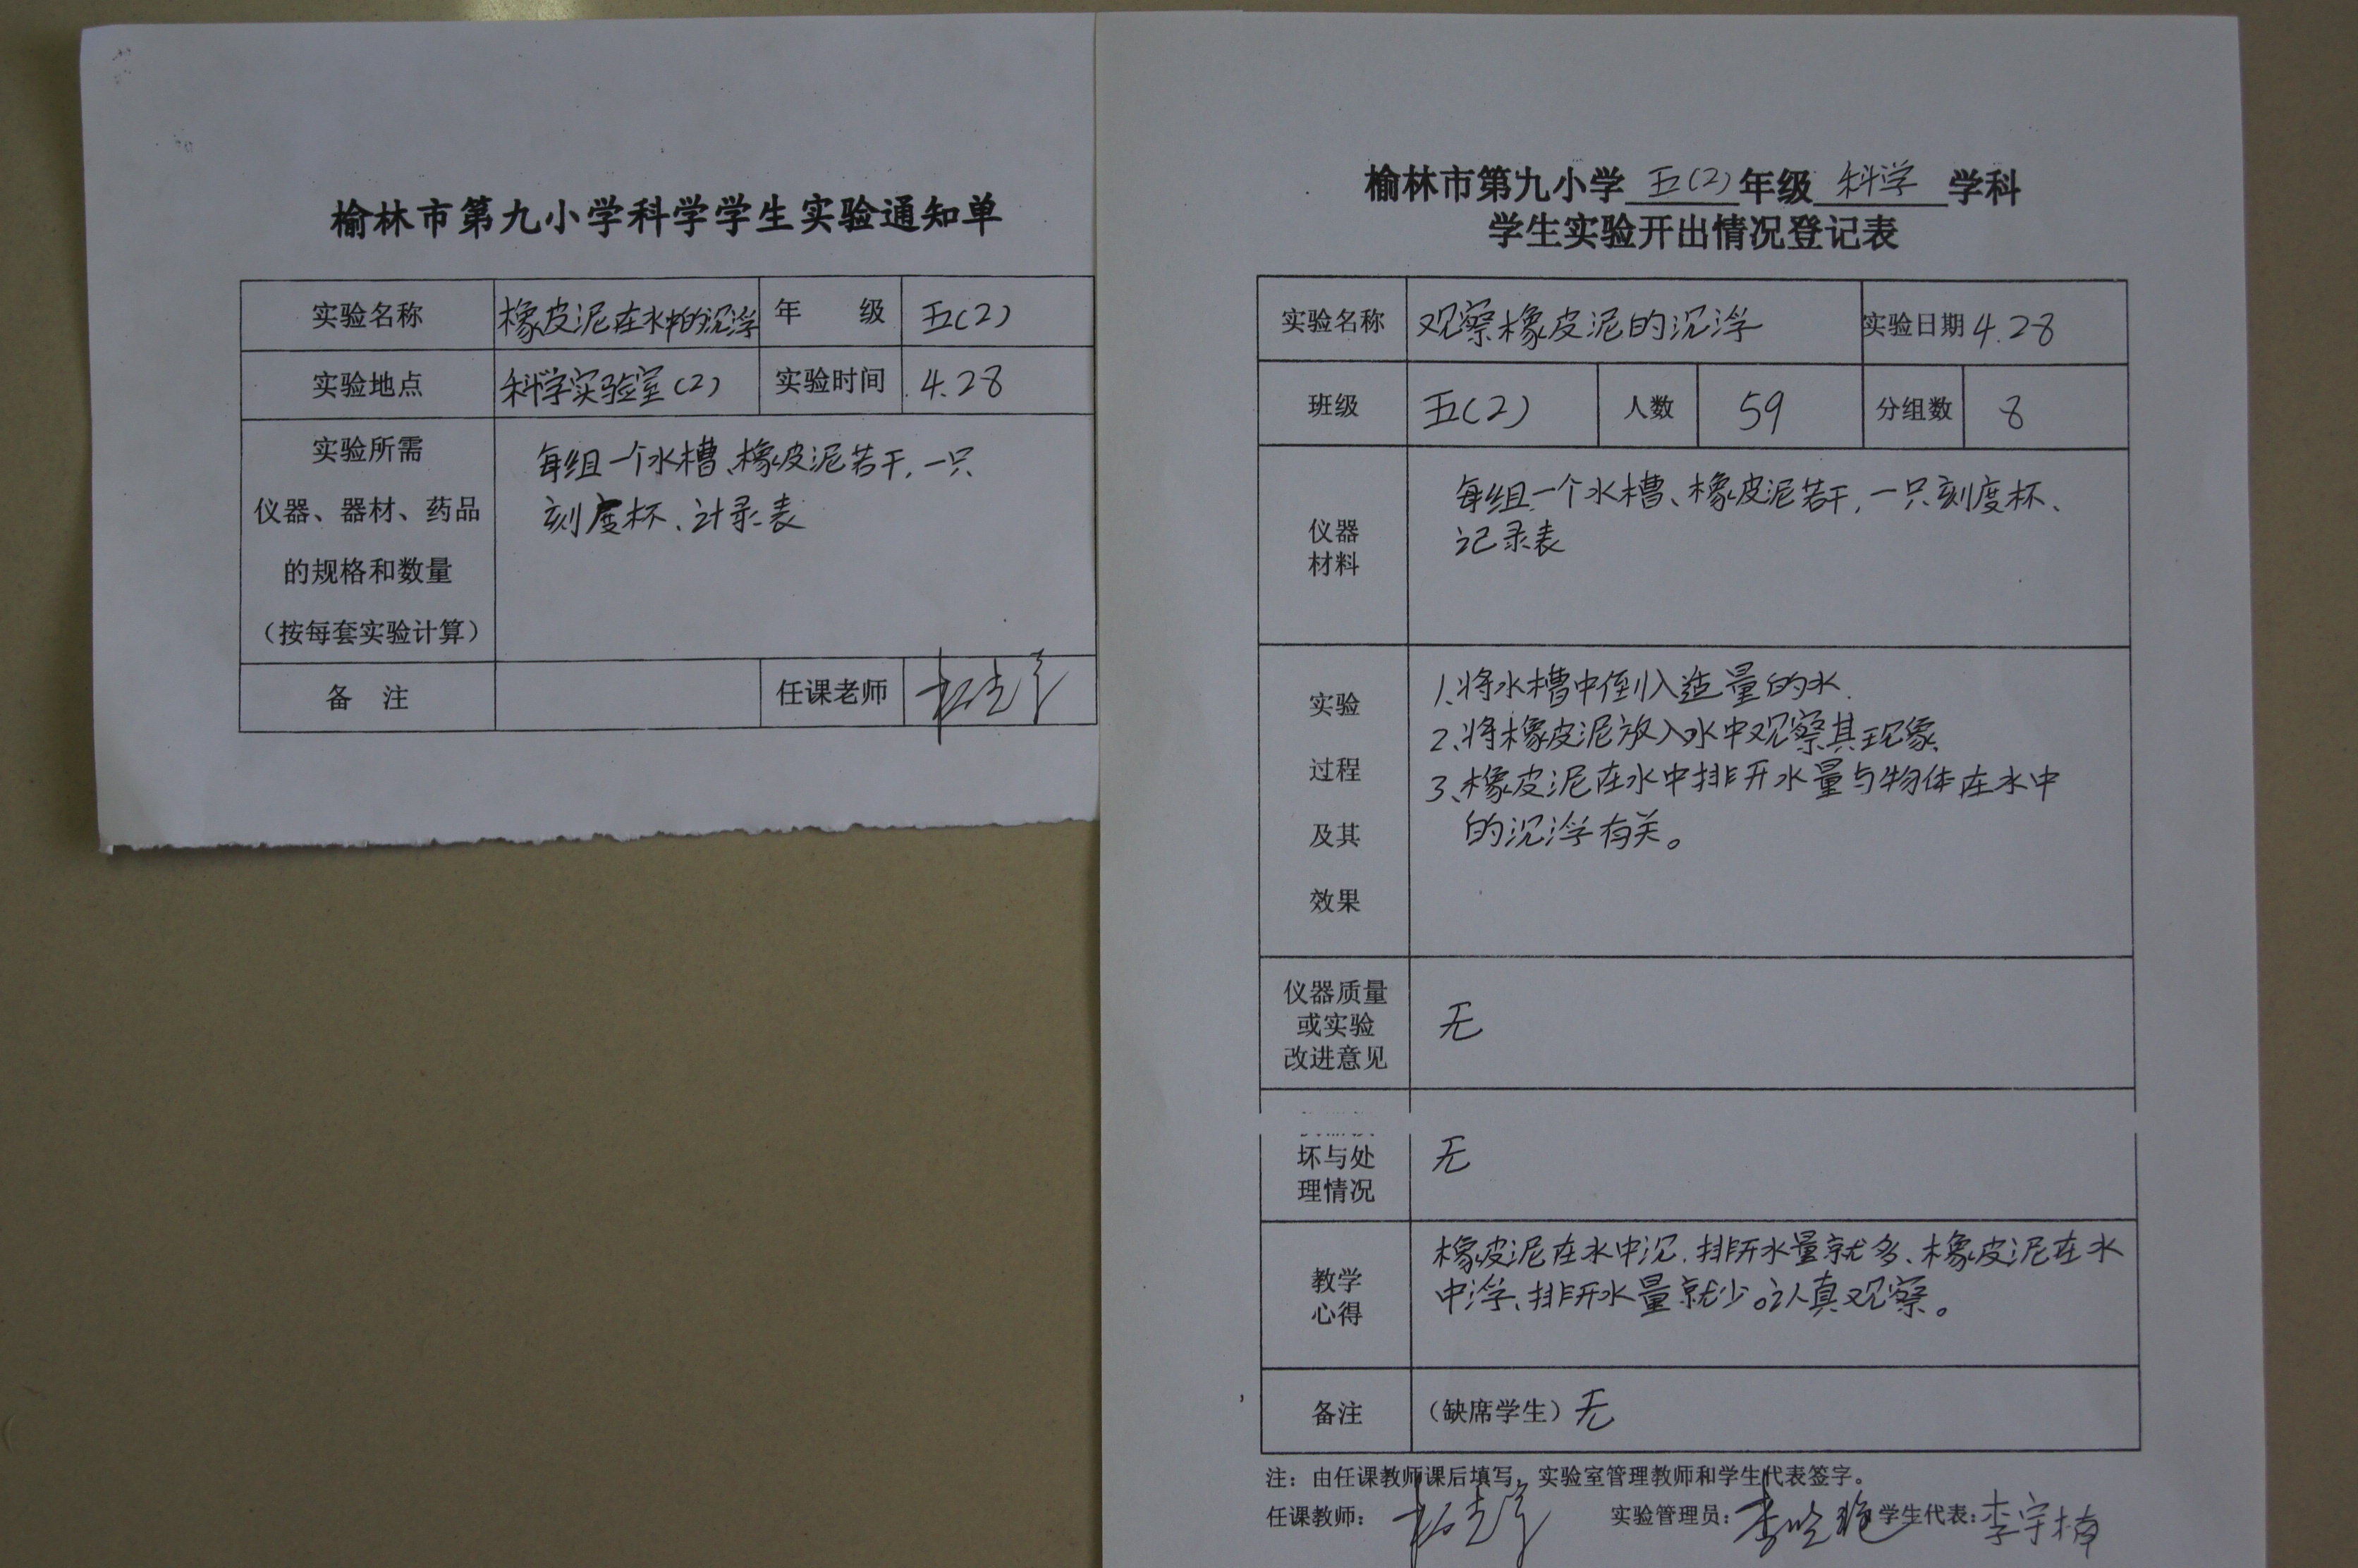 榆林市第九小学科学学生实验通知单
实验名称 橡皮泥在水中的沉浮 年 级 五(2)
实验地点 科学实验室(2) 实验时间 4.28
实验所需
仪器、器材、药品
的规格和数量
（按每套实验计算）
每组一个水槽、橡皮泥若干,一只
刻度杯、计录表
备 注 任课老师
榆林市第九小学 五(2) 年级 科学 学科
学生实验开出情况登记表
实验名称 观察橡皮泥的沉浮 实验日期 4.28
班级 五(2) 人数 59 分组数 8
仪器
材料
每组一个水槽、橡皮泥若干,一只刻度杯、
记录表
实验
过程
及其
效果
1、将水槽中倒入适量的水.
2、将橡皮泥放入水中观察其现象、
3、橡皮泥在水中排开水量与物体在水中
的沉浮有关。
仪器质量
或实验
改进意见
无
坏与处
理情况
无
教学
心得
橡皮泥在水中沉.排开水量就多、橡皮泥在水
中浮、排开水量就少。认真观察。
备注 （缺席学生）无
注：由任课教师课后填写，实验室管理教师和学生代表签字。
任课教师： 实验管理员： 学生代表：李宇楠